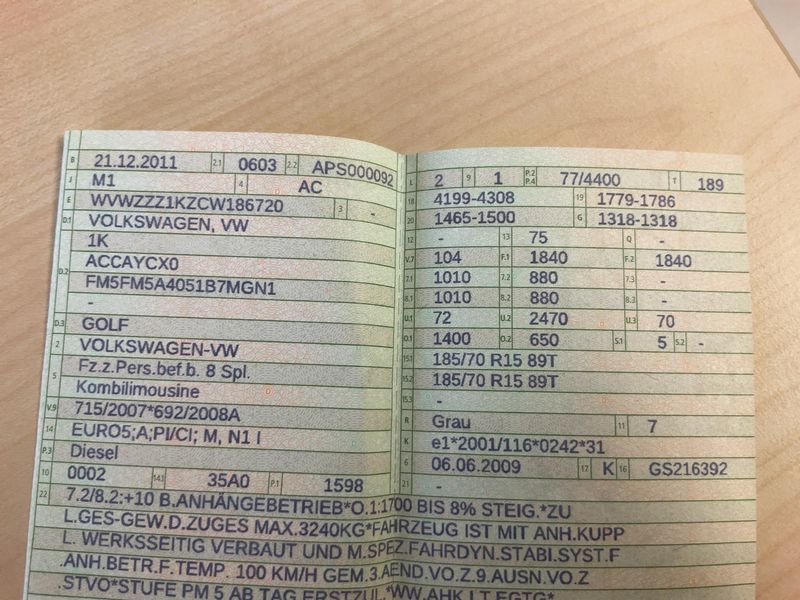 B 21.12.2011 2.1 0603 2.2 APS000092
J M1 4 AC
E WVWZZZ1KZCW186720 3 -
D.1 VOLKSWAGEN, VW
1K
D.2 ACCAYCX0
FM5FM5A4051B7MGN1
-
D.3 GOLF
2 VOLKSWAGEN-VW
5 Fz.z.Pers.bef.b. 8 Spl.
Kombilimousine
V.9 715/2007*692/2008A
14 EURO5;A;PI/CI; M, N1 I
P.3 Diesel
10 0002 14.1 35A0 P.1 1598
L 2 9 1 P.2 P.4 77/4400 T 189
18 4199-4308 19 1779-1786
20 1465-1500 G 1318-1318
12 - 13 75 Q -
V.7 104 F.1 1840 F.2 1840
7.1 1010 7.2 880 7.3 -
8.1 1010 8.2 880 8.3 -
U.1 72 U.2 2470 U.3 70
O.1 1400 O.2 650 S.1 5 S.2 -
15.1 185/70 R15 89T
15.2 185/70 R15 89T
15.3 -
R Grau 11 7
K e1*2001/116*0242*31
6 06.06.2009 17 K 16 GS216392
21 -
22 7.2/8.2:+10 B.ANHÄNGEBETRIEB*O.1:1700 BIS 8% STEIG.*ZU
L.GES-GEW.D.ZUGES MAX.3240KG*FAHRZEUG IST MIT ANH.KUPP
L. WERKSSEITIG VERBAUT UND M.SPEZ.FAHRDYN.STABI.SYST.F
.ANH.BETR.F.TEMP. 100 KM/H GEM.3.AEND.VO.Z.9.AUSN.VO.Z
.STVO*STUFE PM 5 AB TAG ERSTZUL.*WW.AHK LT.EGTG*